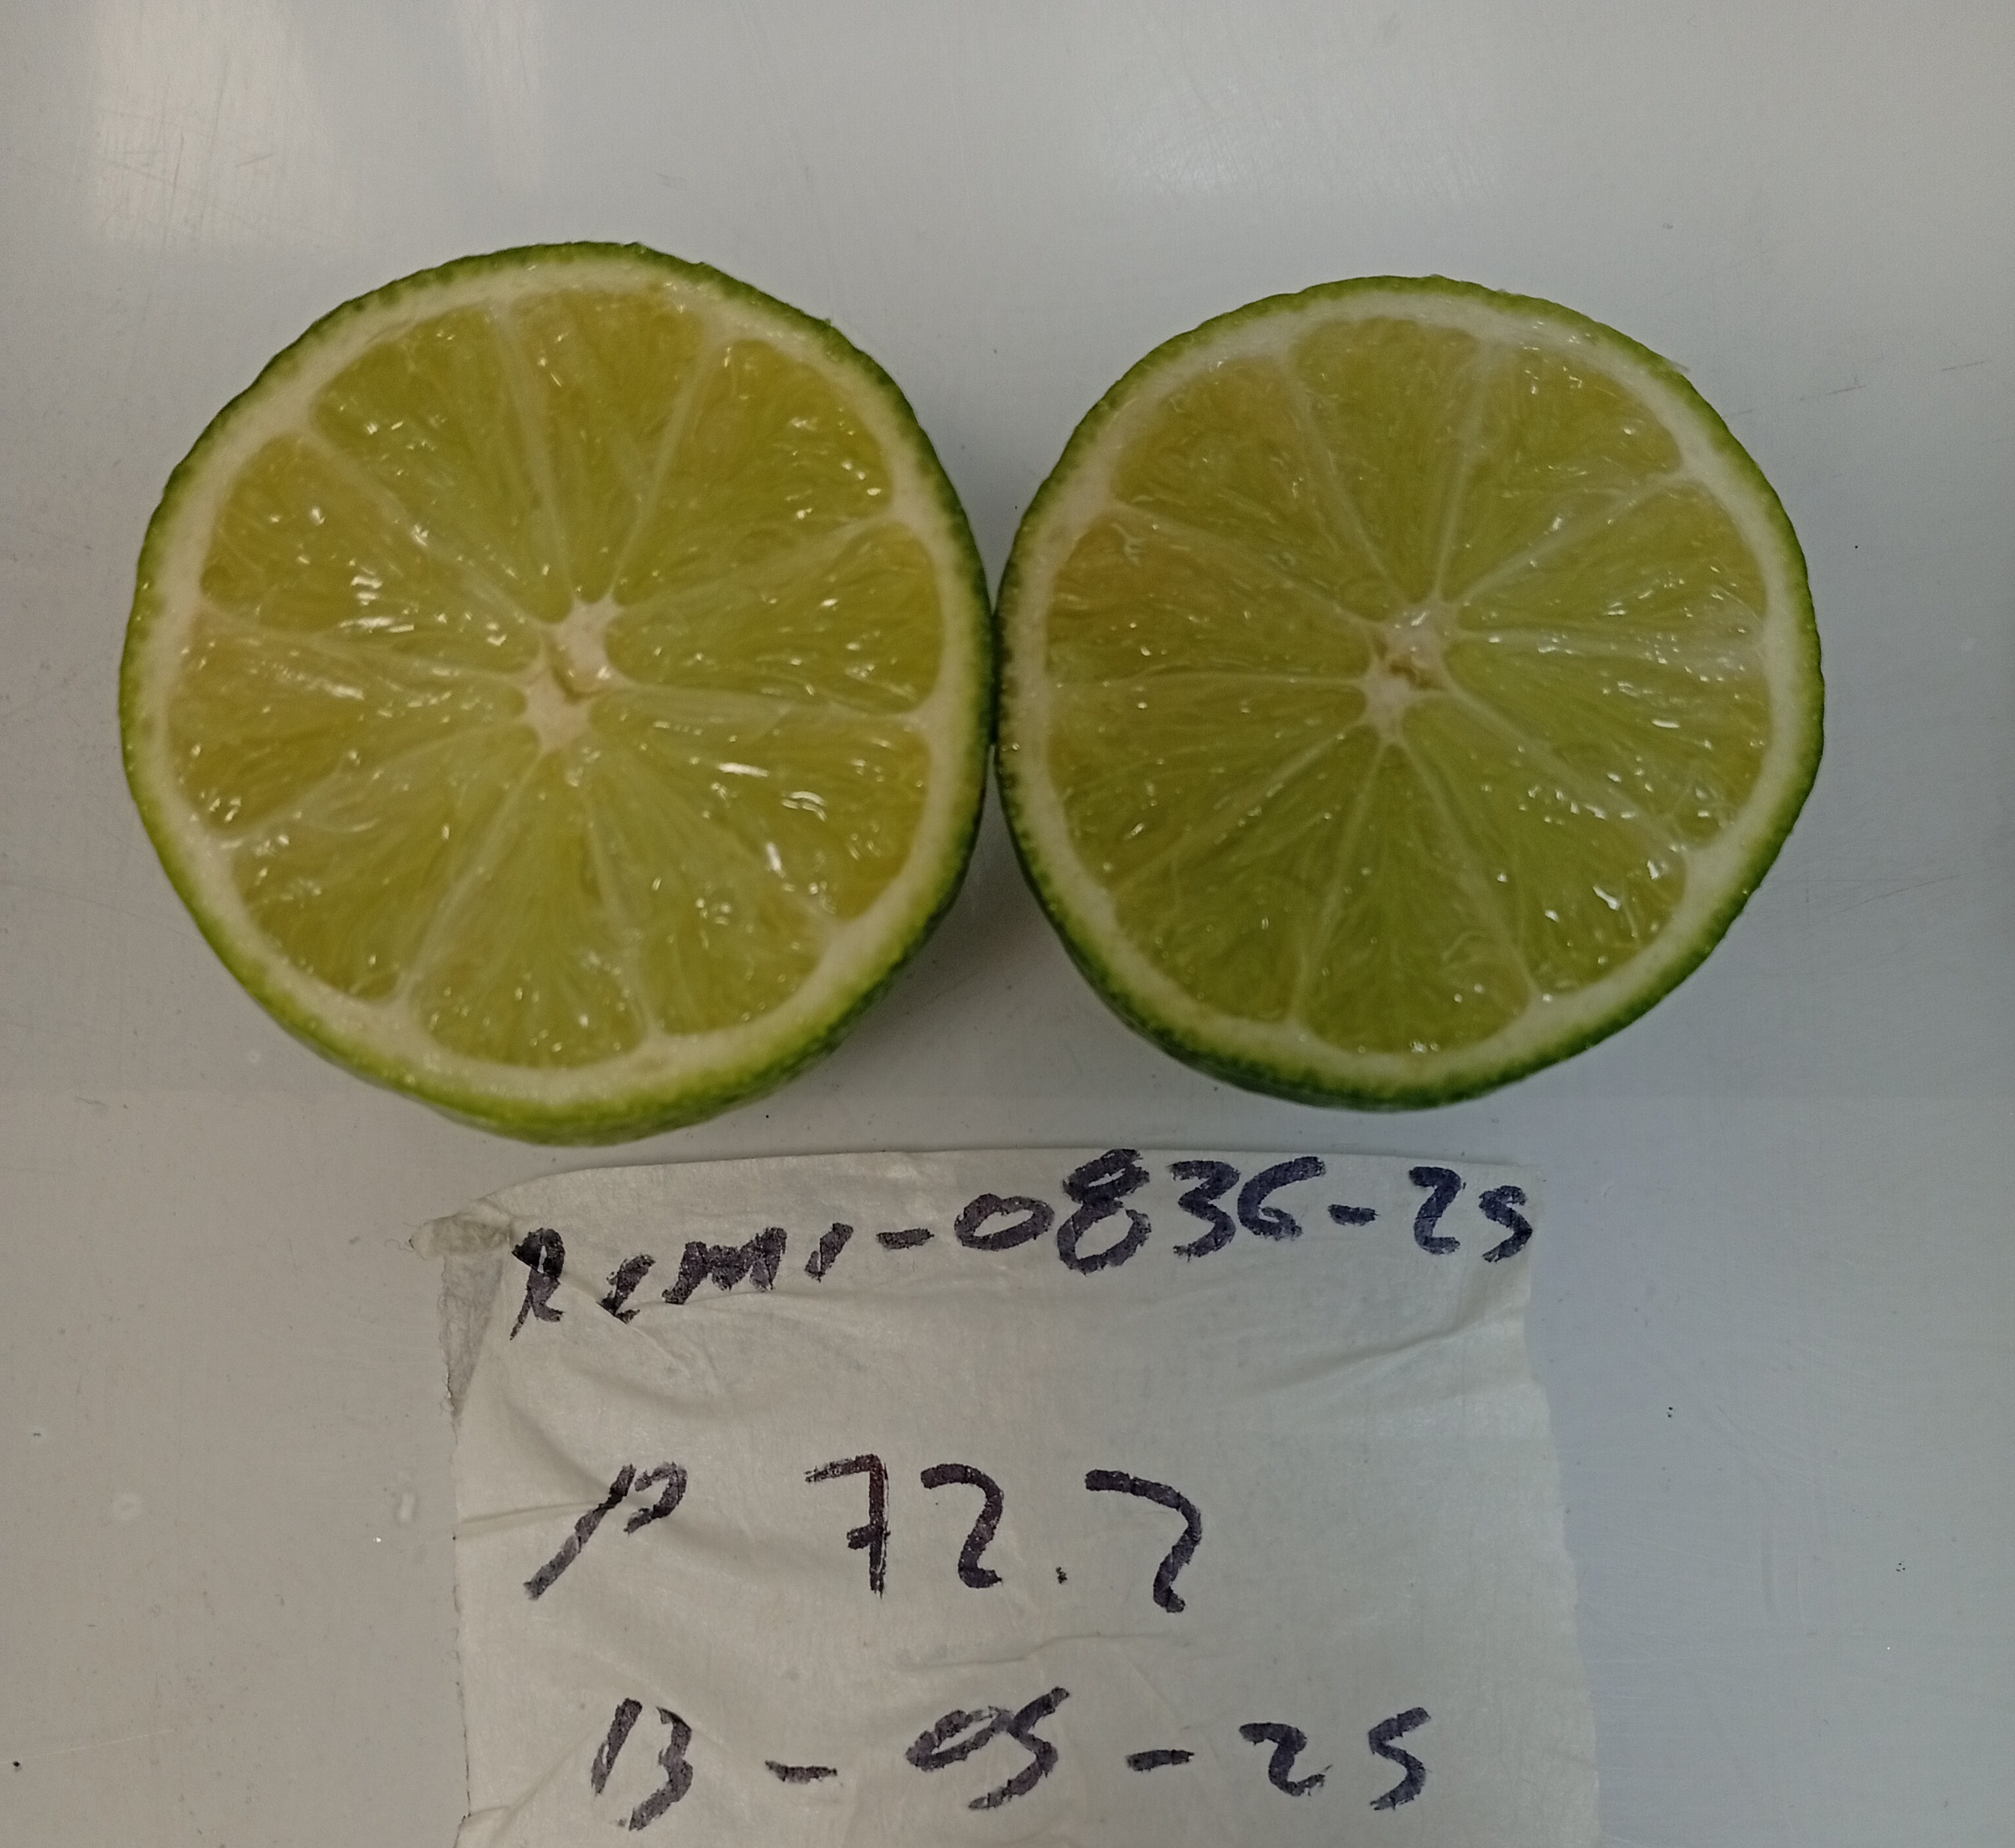 Remi-0836-25
P 72.2
13-05-25